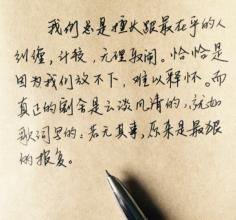 我们总是擅长跟最在乎的人
纠缠，计较，无理取闹。恰恰是
因为我们放不下，难以释怀。而
真正的割舍是云淡风清的，就如
歌词里的：若无其事，原来是最狠
的报复。